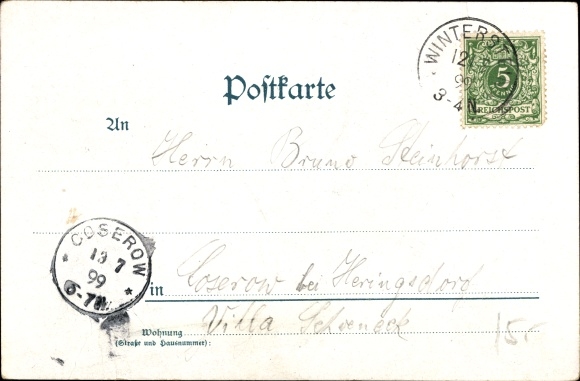 WINTERST
12
99
3-4 N
5
REICHSPOST
Postkarte
An
Herrn Bruno Steinhorst
COSEROW
13 7
99
6-7 N
in Coserow bei Heringsdorf
Villa Schoeneck
Wohnung
(Straße und Hausnummer):
15.-